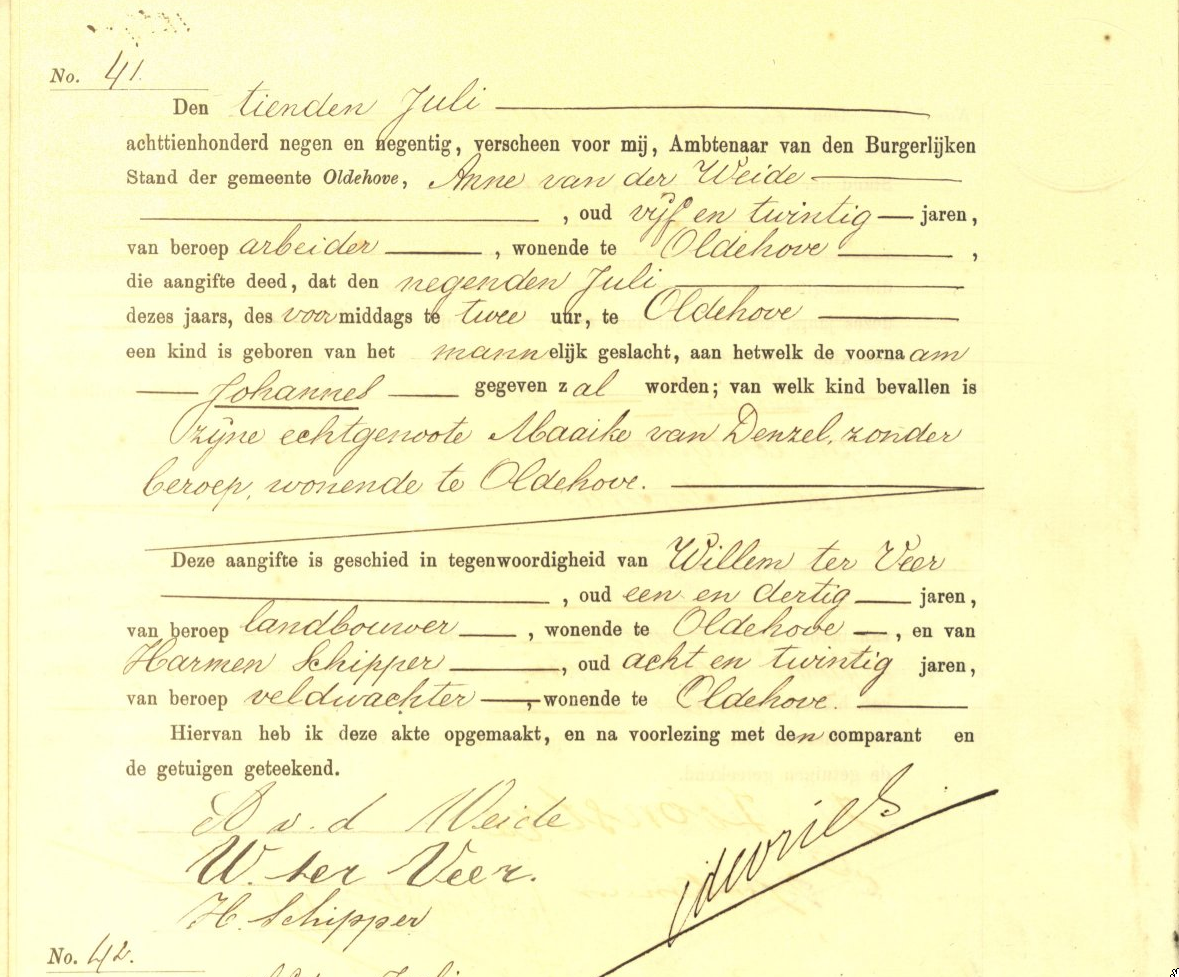 No. 41.
Den tienden Juli
achttienhonderd negen en negentig, verscheen voor mij, Ambtenaar van den Burgerlijken
Stand der gemeente Oldehove, Anne van der Weide
, oud vijf en twintig jaren,
van beroep arbeider, wonende te Oldehove,
die aangifte deed, dat den negenden Juli
dezes jaars, des voormiddags te twee uur, te Oldehove
een kind is geboren van het mannelijk geslacht, aan hetwelk de voornaam
Johannes gegeven zal worden; van welk kind bevallen is
zijne echtgenoote Maaike van Denzel, zonder
beroep, wonende te Oldehove.
Deze aangifte is geschied in tegenwoordigheid van Willem ter Veer
, oud een en dertig jaren,
van beroep landbouwer, wonende te Oldehove, en van
Harmen Schipper, oud acht en twintig jaren,
van beroep veldwachter, wonende te Oldehove.
Hiervan heb ik deze akte opgemaakt, en na voorlezing met den comparant en
de getuigen geteekend.
A v. d Weide
W. ter Veer.
H. Schipper
devries
No. 42.
Juli